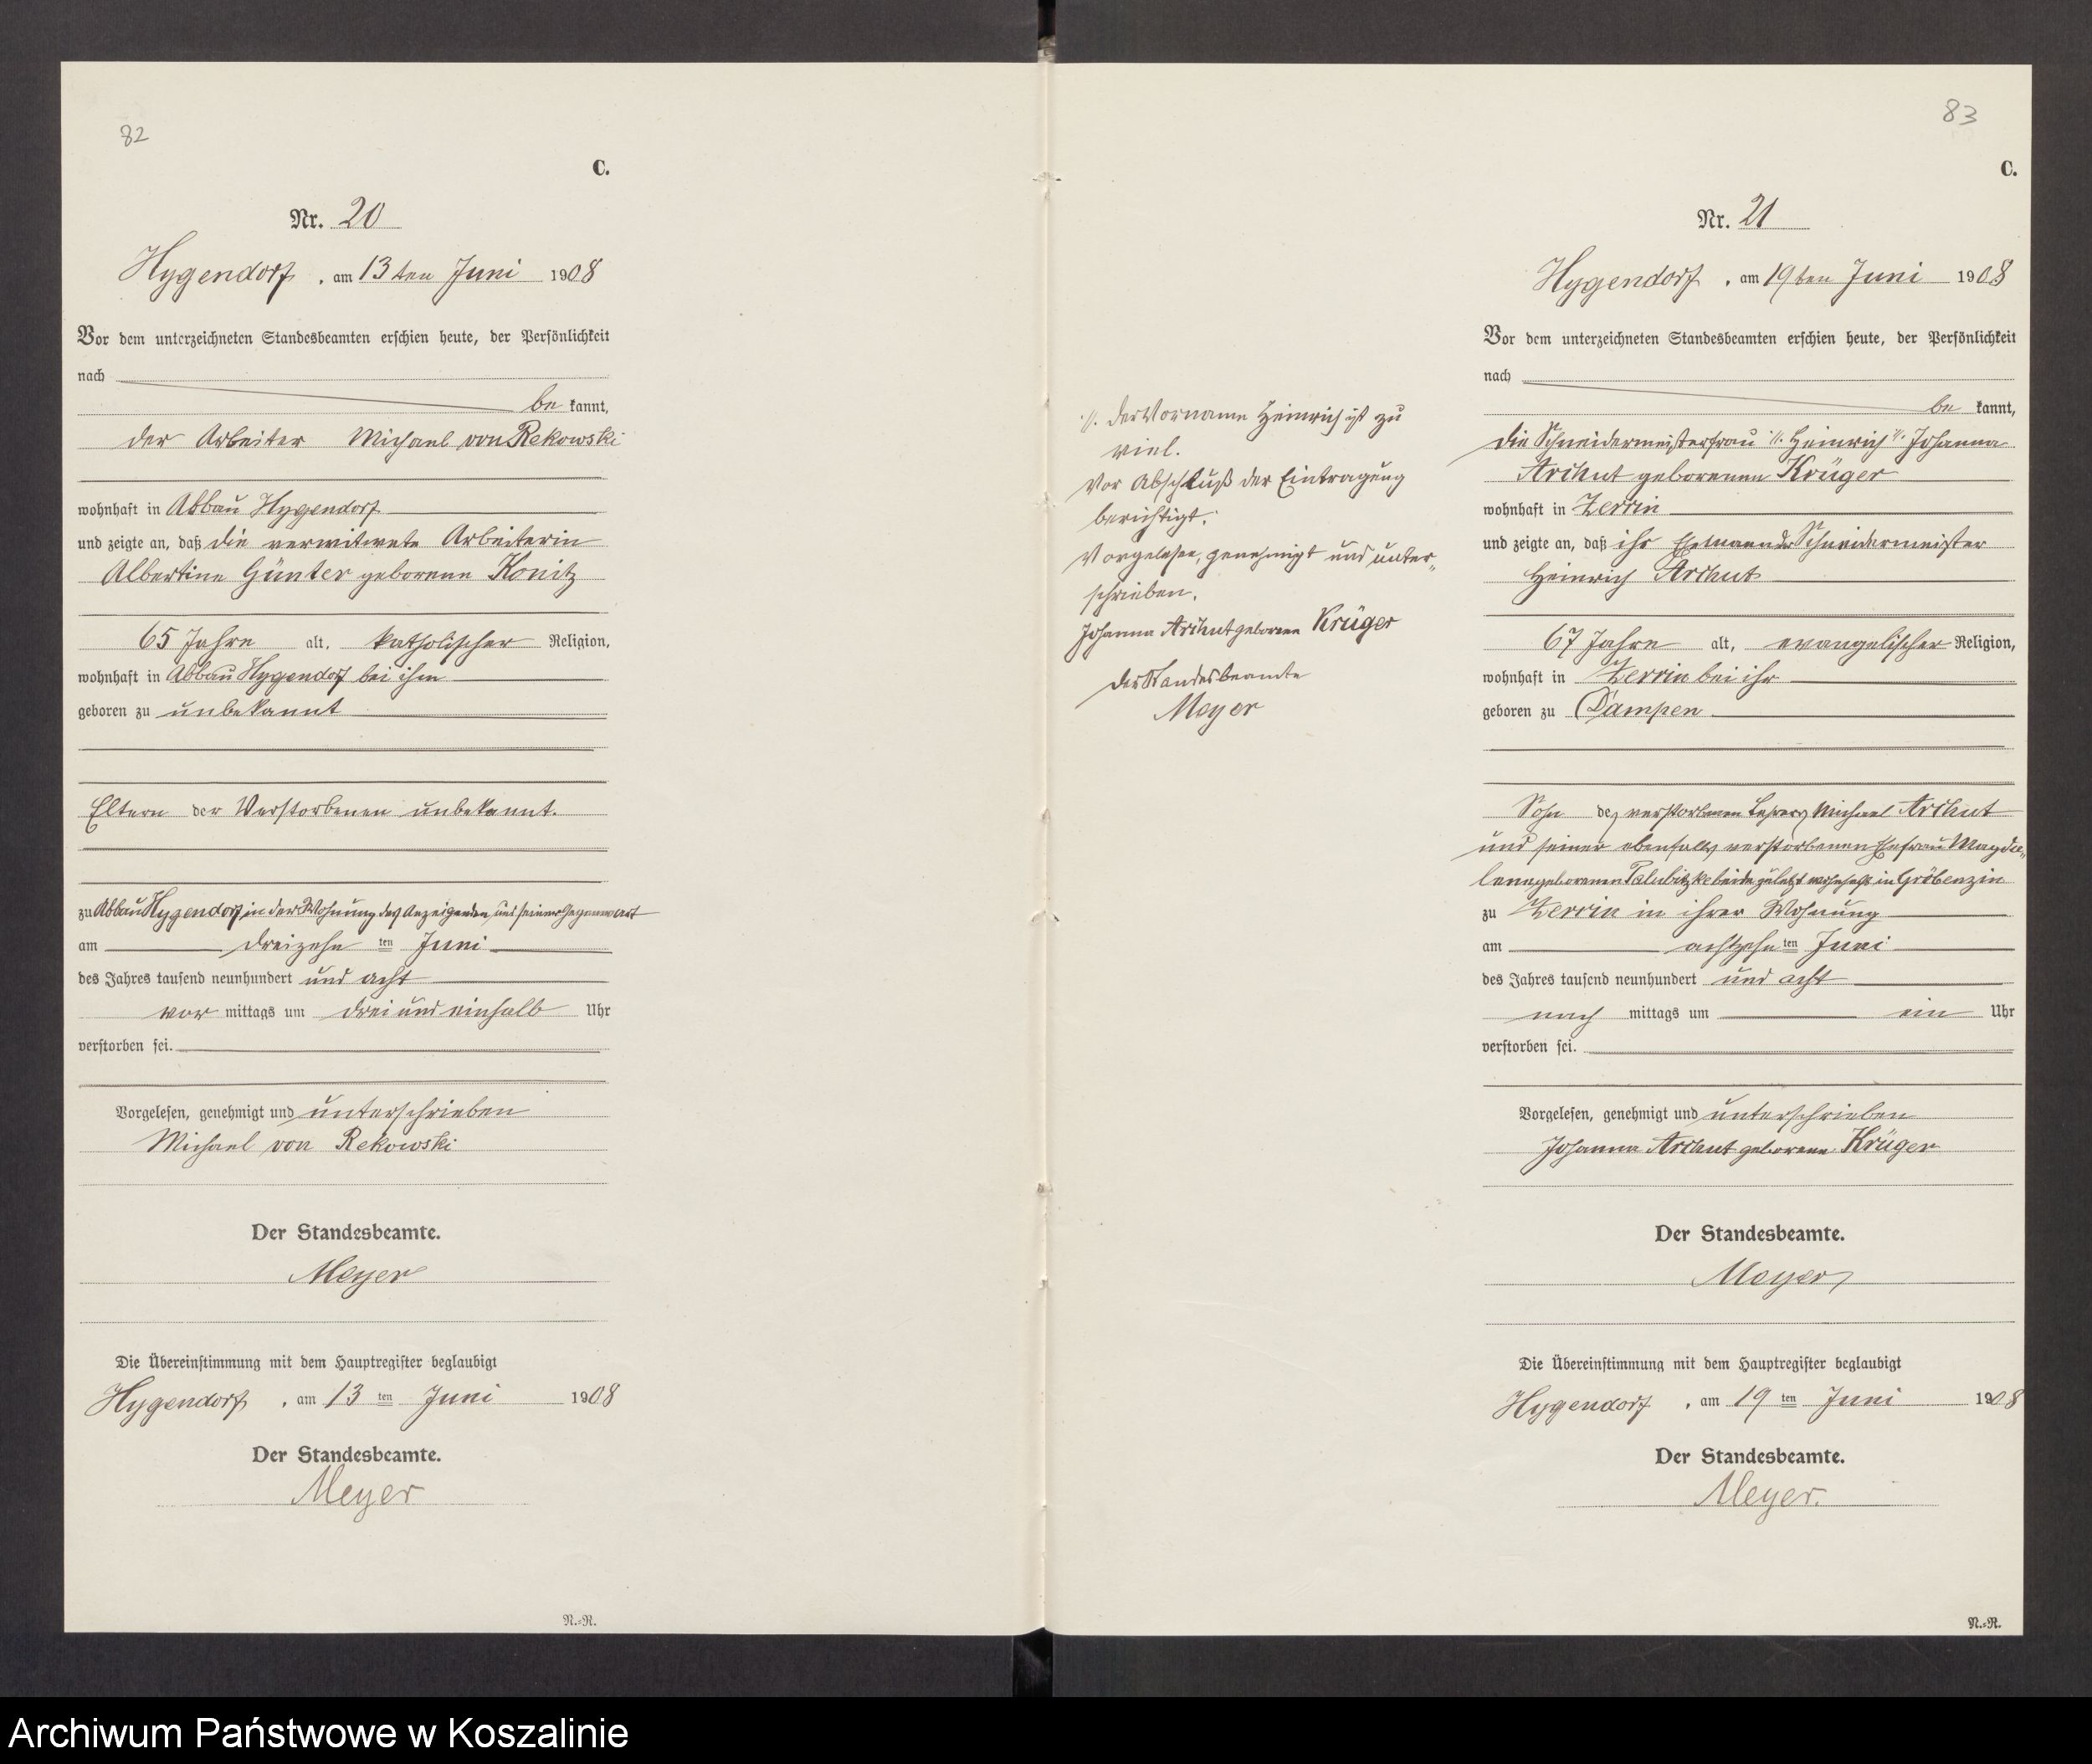 82
C.
Nr. 20
Hygendorf, am 13ten Juni 1908
Vor dem unterzeichneten Standesbeamten erschien heute, der Persönlichkeit
nach
be kannt,
der Arbeiter Michael von Rekowski
wohnhaft in Abbau Hygendorf
und zeigte an, daß die verwitwete Arbeiterin
Albertine Günter geborene Konitz
65 Jahre alt, katholischer Religion,
wohnhaft in Abbau Hygendorf bei ihm
geboren zu unbekannt
Eltern der Verstorbenen unbekannt.
zu Abbau Hygendorf in der Wohnung des Anzeigenden, in seiner Gegenwart
am dreizehn ten Juni
des Jahres tausend neunhundert und acht
vor mittags um drei und einhalb Uhr
verstorben sei.
Vorgelesen, genehmigt und unterschrieben
Michael von Rekowski
Der Standesbeamte.
Meyer
Die Übereinstimmung mit dem Hauptregister beglaubigt
Hygendorf, am 13 ten Juni 1908
Der Standesbeamte.
Meyer
N.=R.
83
C.
Nr. 21
Hygendorf, am 19ten Juni 1908
Vor dem unterzeichneten Standesbeamten erschien heute, der Persönlichkeit
nach
be kannt,
die Schneidermeisterfrau //. Heinrich //. Johanna
Arihut geborenen Krüger
wohnhaft in Zerrin
und zeigte an, daß ihr Ehemann der Schneidermeister
Heinrich Arihut
67 Jahre alt, evangelischer Religion,
wohnhaft in Zerrin bei ihr
geboren zu Dampen
Sohn des verstorbenen Lehrers Michael Arihut
und seiner ebenfalls verstorbenen Ehefrau Magda-
lene geborenen Talubitzke beide zuletzt wohnhaft in Gröbenzin
zu Zerrin in ihrer Wohnung
am achtzehn ten Juni
des Jahres tausend neunhundert und acht
nach mittags um ein Uhr
verstorben sei.
Vorgelesen, genehmigt und unterschrieben
Johanna Arihut geborene Krüger
Der Standesbeamte.
Meyer
Die Übereinstimmung mit dem Hauptregister beglaubigt
Hygendorf, am 19 ten Juni 1908
Der Standesbeamte.
Meyer.
N.=R.
//. der Vorname Heinrich ist zu
viel.
Vor Abschluß der Eintragung
berichtigt.
Vorgelesen, genehmigt und unter-
schrieben.
Johanna Arihut geborene Krüger
Der Standesbeamte
Meyer
Archiwum Państwowe w Koszalinie